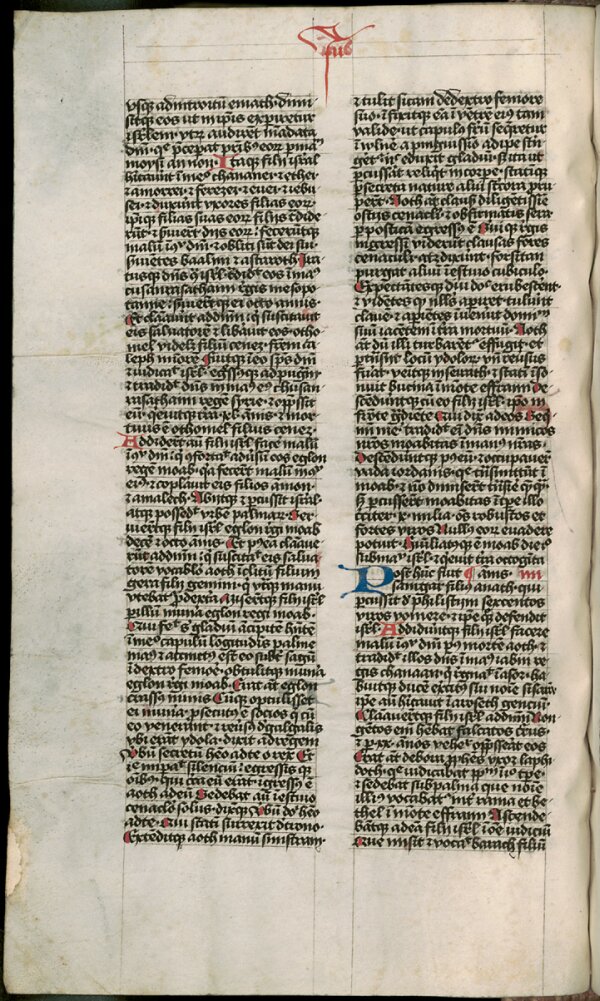 usq; ad introitu emath · dimi
sitq; eos ut in ipis expiretur
isrlem · utrum audiret mandata
dni · q pceperat patrib eor p manu
moysi an non · Itaq; filii isral
hitaut i me° chananei · et ethei
et amorrei · et ferezei · et euei · et iebu
sei · et duxerut uxores filias eor
ipiq; filias suas eor filiis tdide
rut · et suierut diis eor · feceruntq;
malu i 9spu dni · et obliti sut dei sui ·
suietes baalim et astaroth · Ira
tusq; dns 9 isrl · tdidit eos i ma9
cusanrasathaim regis mesopo
tamie · suierutq; ei octo annis ·
Et clamaut ad dnm · q suscitauit
eis saluatore et libauit eos · otho
niel videlicet filiu cenez · frem ca
leph miore · fuitq; i eo sps dni
et iudicauit isrl · egssusq; ad pugna
et tradidit dns i manu eius chusan
rasathaim rege syrie · et oppssit
eu · quieuitq; tra · xl · annis · et mor
tuus e othoniel filius cenez ·
Addiderut aut filii isrl face malu
i 9spu dni · q 9fortauit adusu eos eglon
rege moab · qa feceut malu i 9spu
ei9 · et copulauit eis filios amon ·
et amalech · Abiitq; et pcussit isral
atq; possedit urbe palmar · Ser
uierutq; filii isrl eglon regi moab
dece et octo annis · Et postea clama
rut ad dnm · q suscitauit eis salua
tore vocablo aoth · iclitu filium
gera filii gemini · q utraq; manu
utebat p dextra · Miserutq; filii isrl
p illu muna eglon regi moab ·
Qui fecit s gladiu ancipite hnte
i me° capulu logitudis palme
manus · et accinctus est eo subt sagu
i dextro femore · obtulitq; muna
eglon regi moab · Erat at eglon
crassus nimis · Cuq; optulisset
ei muna psecutus e socios q cu
eo venerant · et reuersus d galgalis
ubi erat ydola · dixit ad regem
Verbu secretu heo ad te o rex · Et
ie impauit silenciu · et egressis q
oibus · qui circa eu erat · igressus e
aoth ad eu · Sedebat aut i estiuo
cenaclo solus · dixitq; verbu di heo
ad te · Qui stati surrexit d trono ·
Extenditq; aoth manu sinistram ·
et tulit sicam d dextro femore
suo · et fixitq; ea i ventre eius tam
valide · ut capula ferru seqretur
i vulne · ac pinguissio adipe stri
get · nec eduxit gladiu · sed ita ut
pcussat reliqt in corpe · statiq;
p secreta nature alui stercora pru
perut · Aoth at clausis diligetissie
ostiis cenacli · et obfirmatis sera
p postica egressus e · Suiq; regis
ingressi viderut clausas fores
cenaculi · atq; dixerut · forsitan
purgat aluu i estiuo cubiculo ·
Expectatesq; diu donec erubescerent
et videtes q nullus apiret · tulerut
claue · et apietes iuenerut dominu
suu iacetem i tra mortuu · Aoth
at du illi turbaret effugit · et
ptrasiit locu ydolor · un reusus
fuat · venitq; in seirath · et statim iso
nuit bucina i mote effraim · De
scederutq; cu eo filii isrl · ipo in
frote gradiete · Qui dixit ad eos Seq
mi me · tradidit ei dns inimicos
nros moabitas in manus nras ·
Descederutq; post eu · et occupauer
vada iordanis · que trasmittut i
moab · et no dimiserut trasire queq;
Sed pcusserut moabitas i tpe illo
cciter · x · milia · oes robustos et
fortes viros · Nullus eor euadere
potuit · Humiliatusq; e moab die illo
sub manu isrl · et qeuit tra octogita
Post huc fuit annis · iiii
samgar filius anath · qui
pcussit d philistiim sexcentos
viros vomere · et ipe q; defendit
isrl · Addideruntq; filii isrl facere
malu i 9spu dni post morte aoth · et
tradidit illos dns i manus iabin re
gis chanaan · q regnauit i asor · ha
buitq; duce exercitus sui noie sisara
ipe aut hitauit i aroseth genciu ·
Clamauerutq; filii isrl ad dnm Non
getos eni hebat falcatos currus ·
et p · xx · annos vehementer oppsserat eos
Erat at debora pphetes uxor lapi
doth · que iudicabat pplm i illo tpe ·
et sedebat sub palma que noie
illius vocabat · int rama et be
thel i mote effraim · Ascende
bantq; ad ea filii isrl · i oe iudiciu
Que misit et vocauit barach filiu